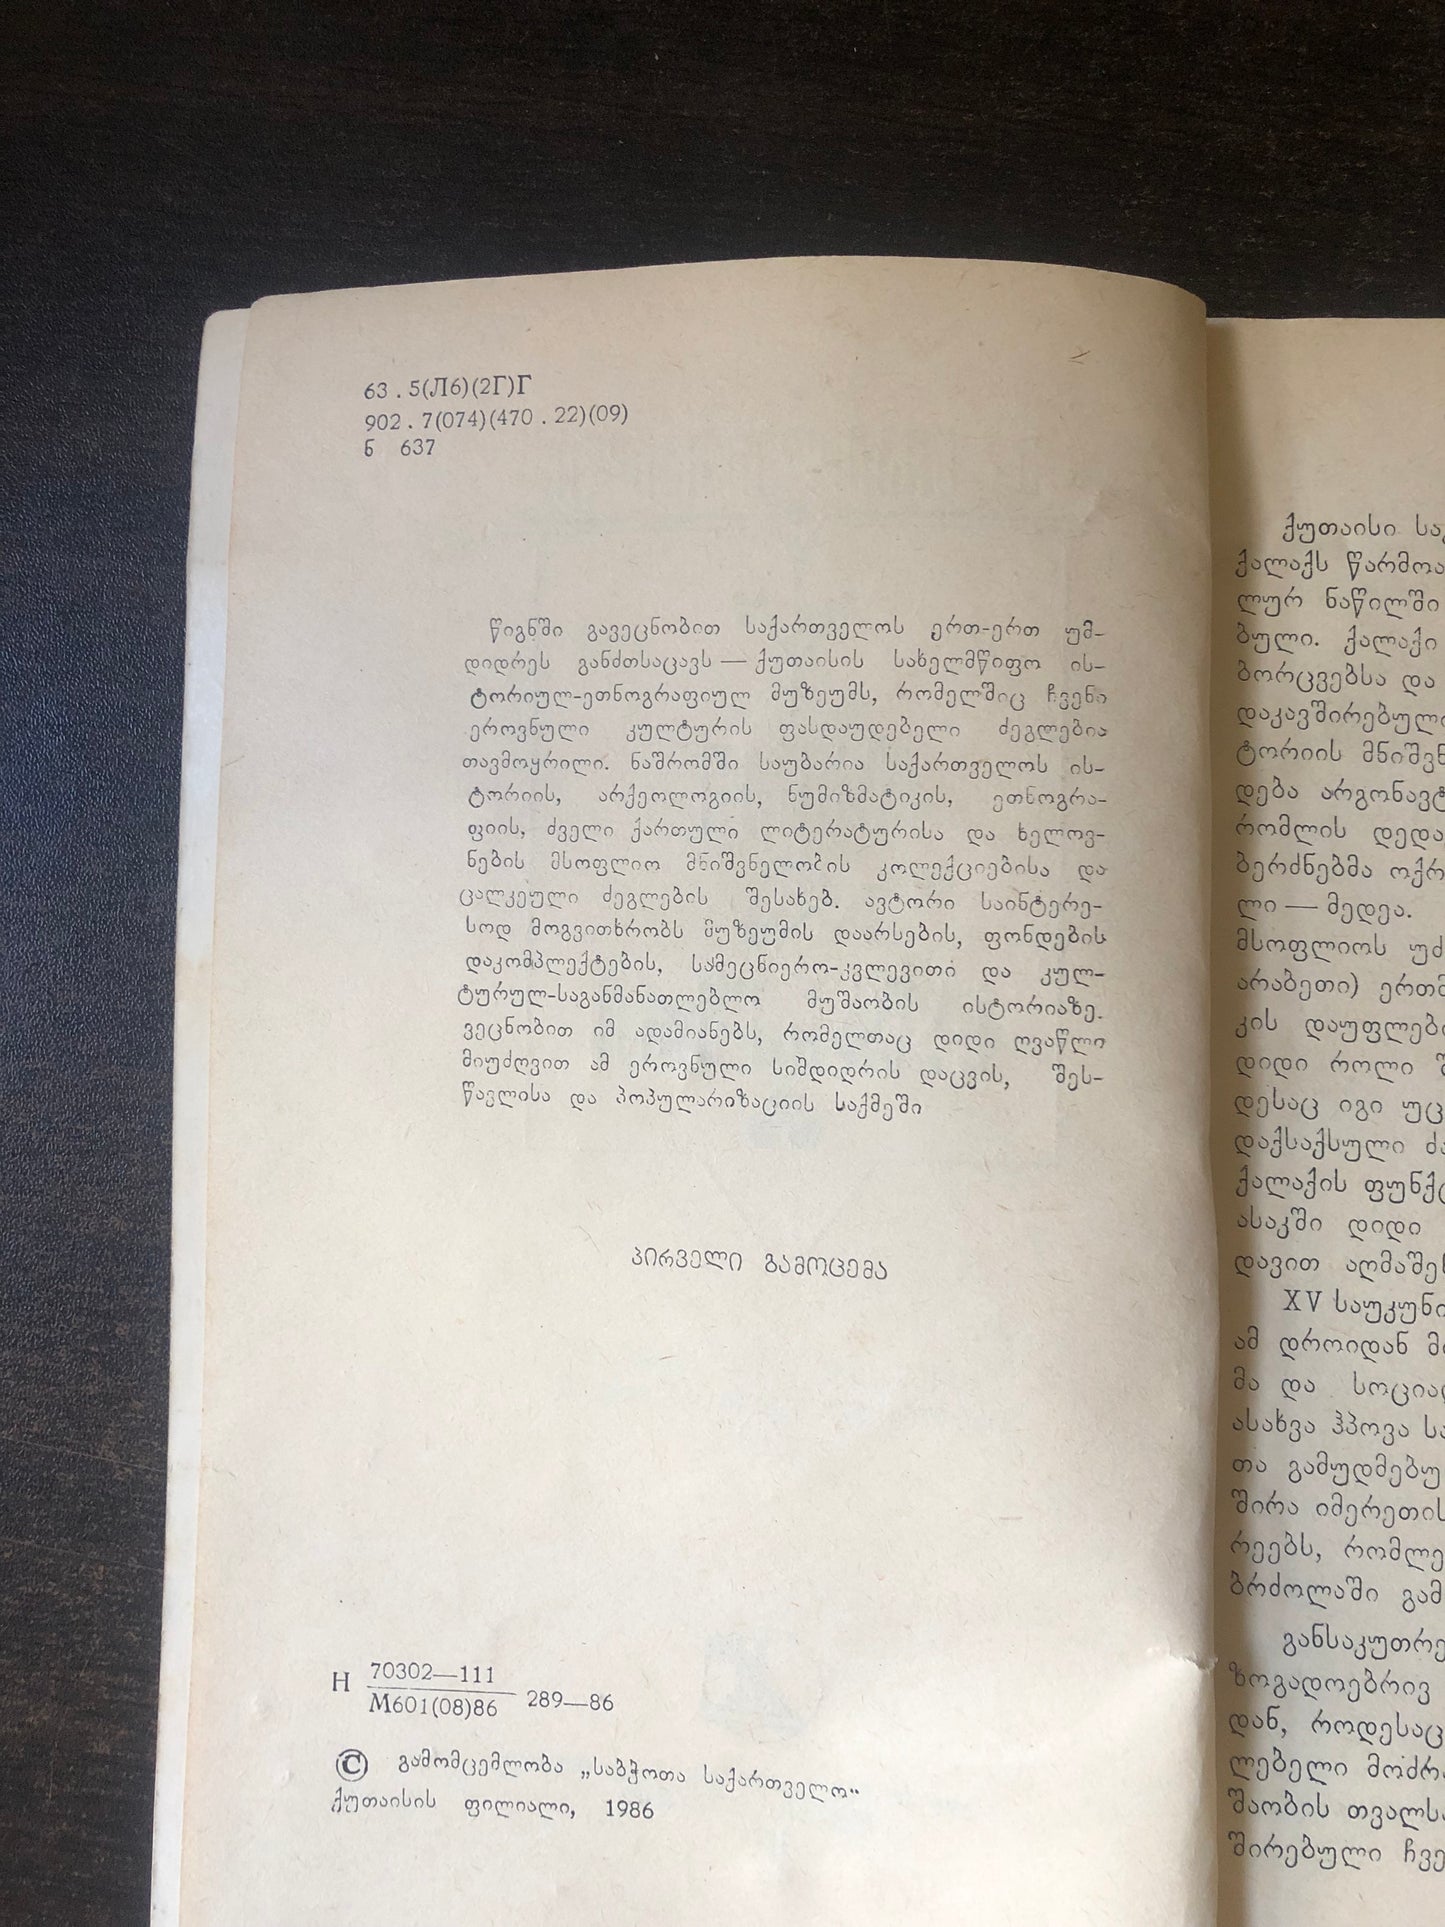 63 . 5(Л6)(2Г)Г
902 . 7(074)(470 . 22)(09)
ნ 637
წიგნში გავეცნობით საქართველოს ერთ-ერთ უმ-
დიდრეს განძთსაცავს — ქუთაისის სახელმწიფო ის-
ტორიულ-ეთნოგრაფიულ მუზეუმს, რომელშიც ჩვენი
ეროვნული კულტურის ფასდაუდებელი ძეგლებია
თავმოყრილი. ნაშრომში საუბარია საქართველოს ის-
ტორიის, არქეოლოგიის, ნუმიზმატიკის, ეთნოგრა-
ფიის, ძველი ქართული ლიტერატურისა და ხელოვ-
ნების მსოფლიო მნიშვნელობის კოლექციებისა და
ცალკეული ძეგლების შესახებ. ავტორი საინტერე-
სოდ მოგვითხრობს მუზეუმის დაარსების, ფონდების
დაკომპლექტების, სამეცნიერო-კვლევითი და კულ-
ტურულ-საგანმანათლებლო მუშაობის ისტორიაზე.
ვეცნობით იმ ადამიანებს, რომელთაც დიდი ღვაწლი
მიუძღვით ამ ეროვნული სიმდიდრის დაცვის, შეს-
წავლისა და პოპულარიზაციის საქმეში
პირველი გამოცემა
Н 70302—111
М601(08)86 289—86
© გამომცემლობა „საბჭოთა საქართველო“
ქუთაისის ფილიალი, 1986
ქუთაისი
ქალაქს
ლურ ნაწილში
ბული. ქალაქი
ბორცვებსა და
დაკავშირებული
ტორიის
დება
რომლის
ბერძნებმა
ლი — მედეა.
მსოფლიოს
არაბეთი)
კის
დიდი როლი
დესაც იგი
დაქსაქსული
ქალაქის
ასაკში დიდი
დავით
XV
ამ დროიდან
მა და
ასახვა ჰპოვა
თა
შირა იმერეთის
რეებს,
ბრძოლაში
ზოგადოებრივ
დან, როდესაც
ლებელი
შაობის
შირებული